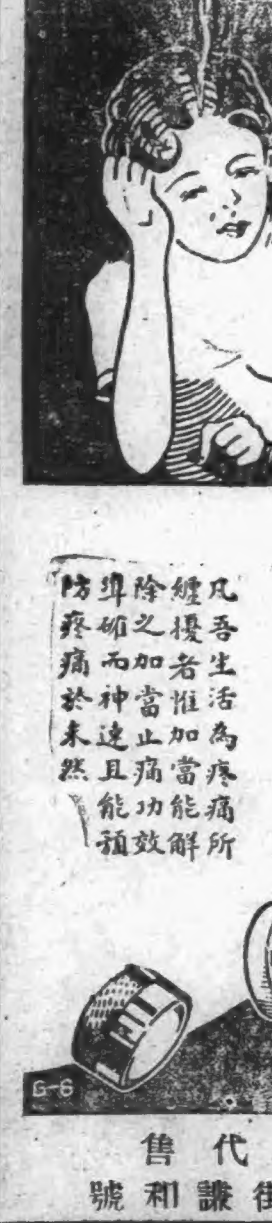 凡吾生活為疼痛所
纏擾者惟加當能解
除之加當止痛功效
準确而神速且能預
防疼痛於未然
G-6
代售
謙和號